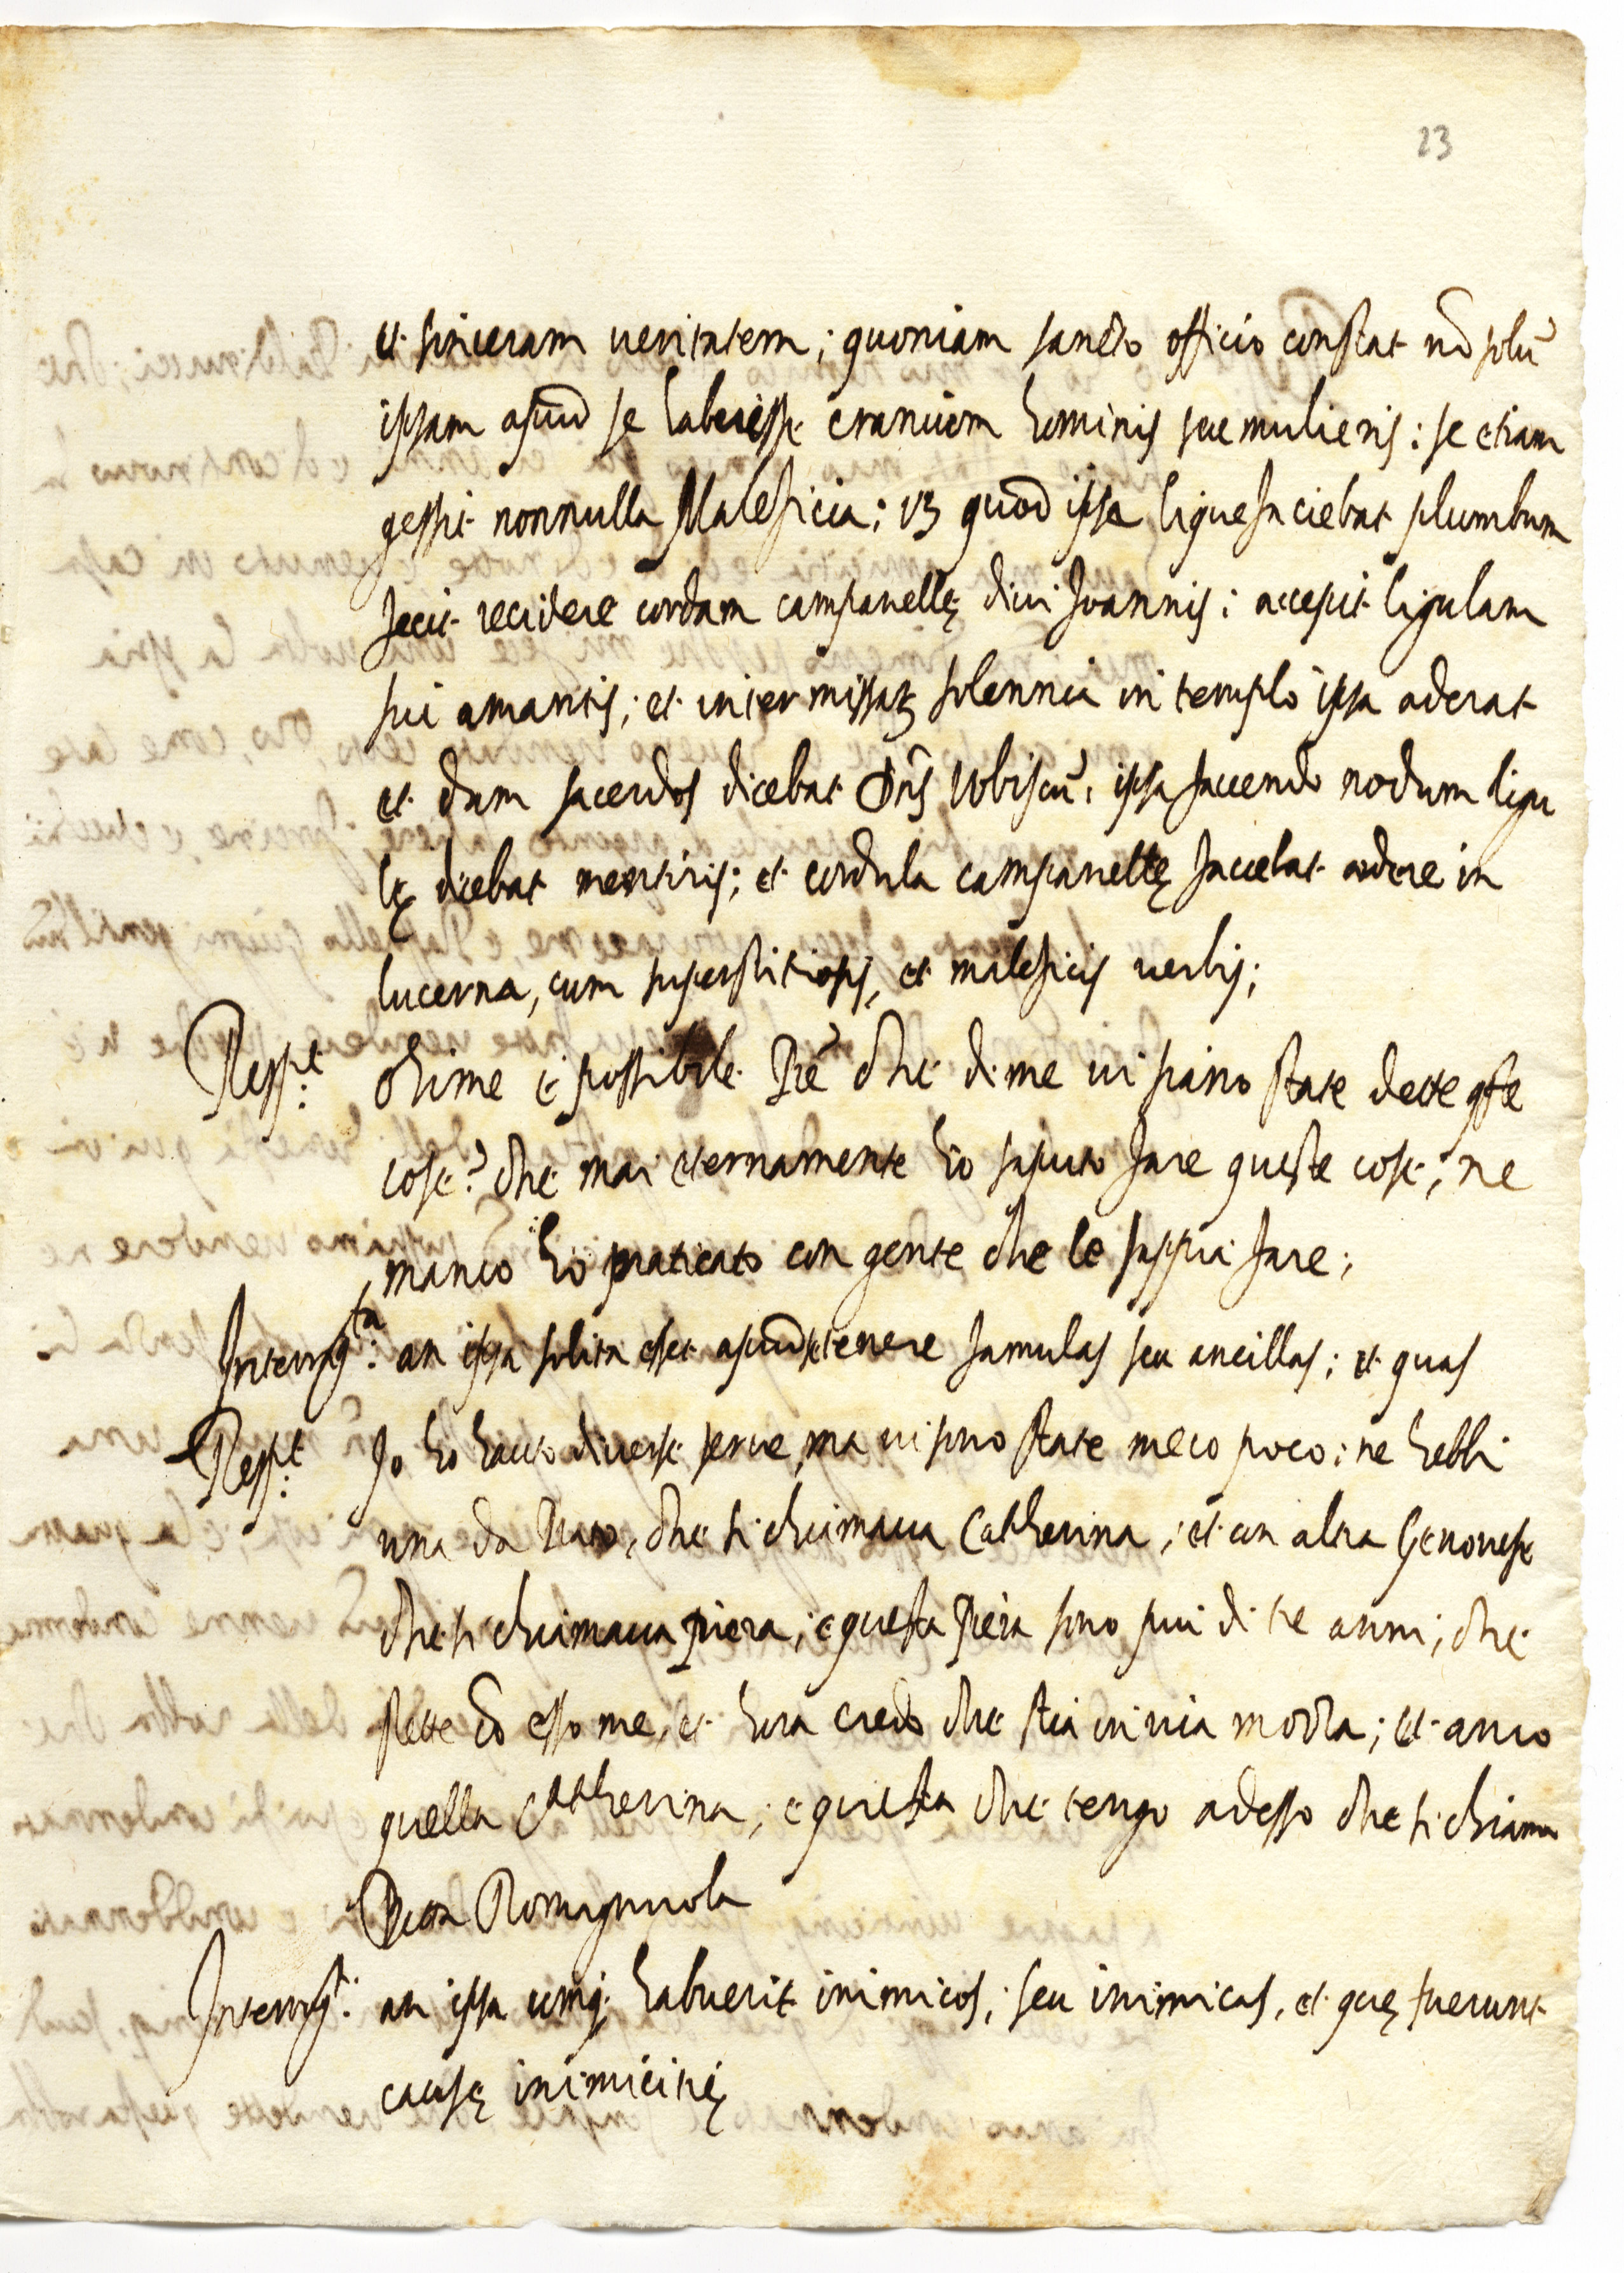 23
et sinceram veritatem; quoniam sancto officio constat nõ solũ
ipsam apud se habuisse cranium hominis sue mulieris: se etiam
gessit nonnulla Maleficia; vz quod ipsa liquefaciebat plumbum
fecit recidere cordam campanellę divi Joannis; accepit ligulam
sui amantis; et inter missarz solennia in templo ipsa aderat
et dum sacerdos dicebat Dñs Vobiscũ; ipsa faciendo nodum ligu
lę dicebat mentiris; et cordula campanellę faciebat ardere in
lucerna, cum superstitiosis, et maleficis verbis;
Respt: Ohime è possibile Prẽ che di me vi siano state dette qste
cose? che mai eternamente hò saputo fare queste cose; ne
manco hò praticato con gente che le sappia fare;
Interrogta: an ipsa solita esset apud se tenere famulas seu ancillas; et quas
Respt: Jo ho hauto diverse serve, ma vi sono state meco poco; ne hebbi
una da Prato, che si chiamava Catherina; et un altra Genovese
che si chiamava piera; e questa Piera sono piu di tre anni; che
stette cõ esso me, et hora credo che stia in via mozza; et anco
quella Catherina; e questa che tengo adesso che si chiama
Romagnuola
Interrogt: an ipsa umq; habuerit inimicos; seu inimicas, et quę fuerunt
causę inimicitię